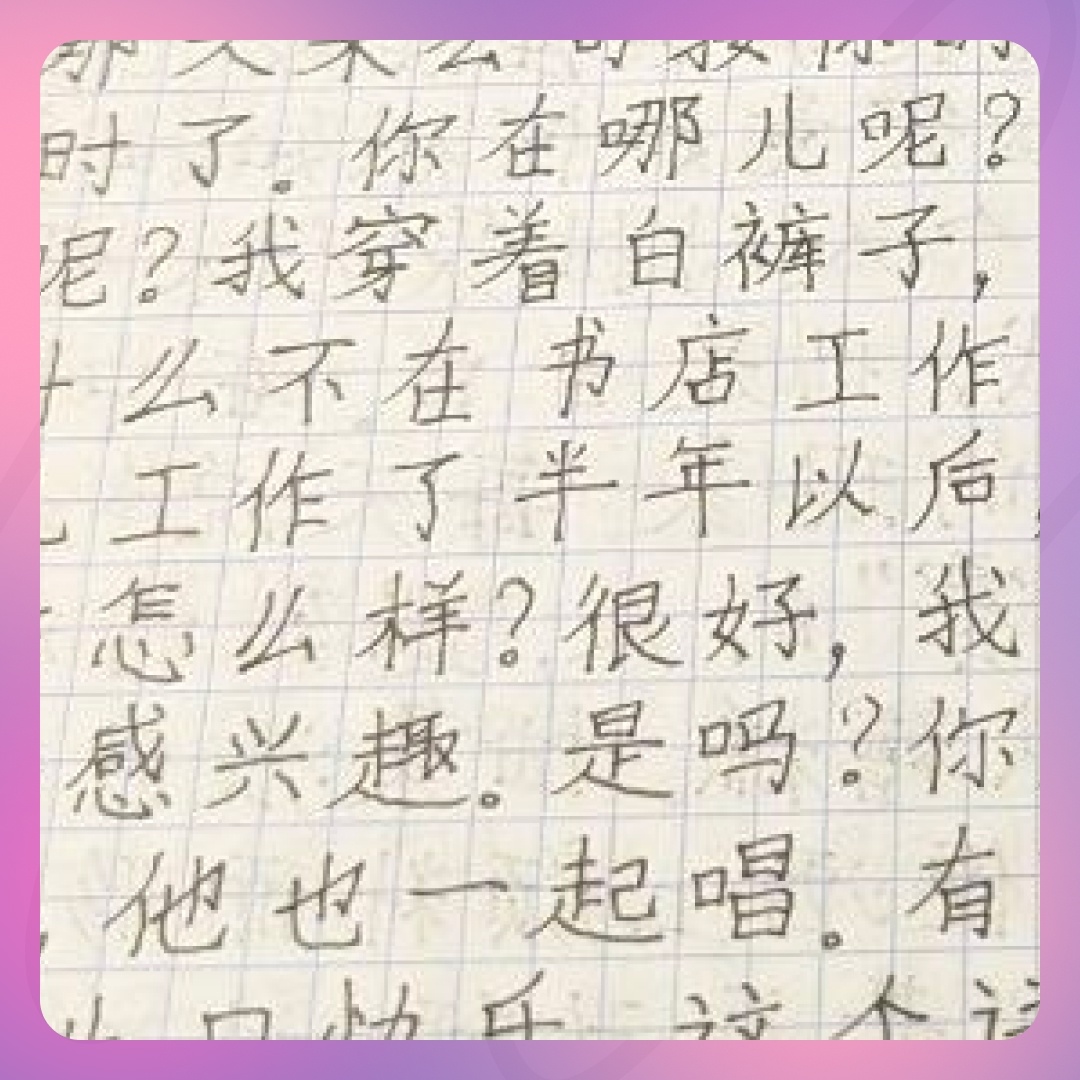 时了。你在哪儿呢?
呢?我穿着白裤子,
么不在书店工作
工作了半年以后,
怎么样?很好,我
感兴趣。是吗?你
他也一起唱。有
快乐 这个